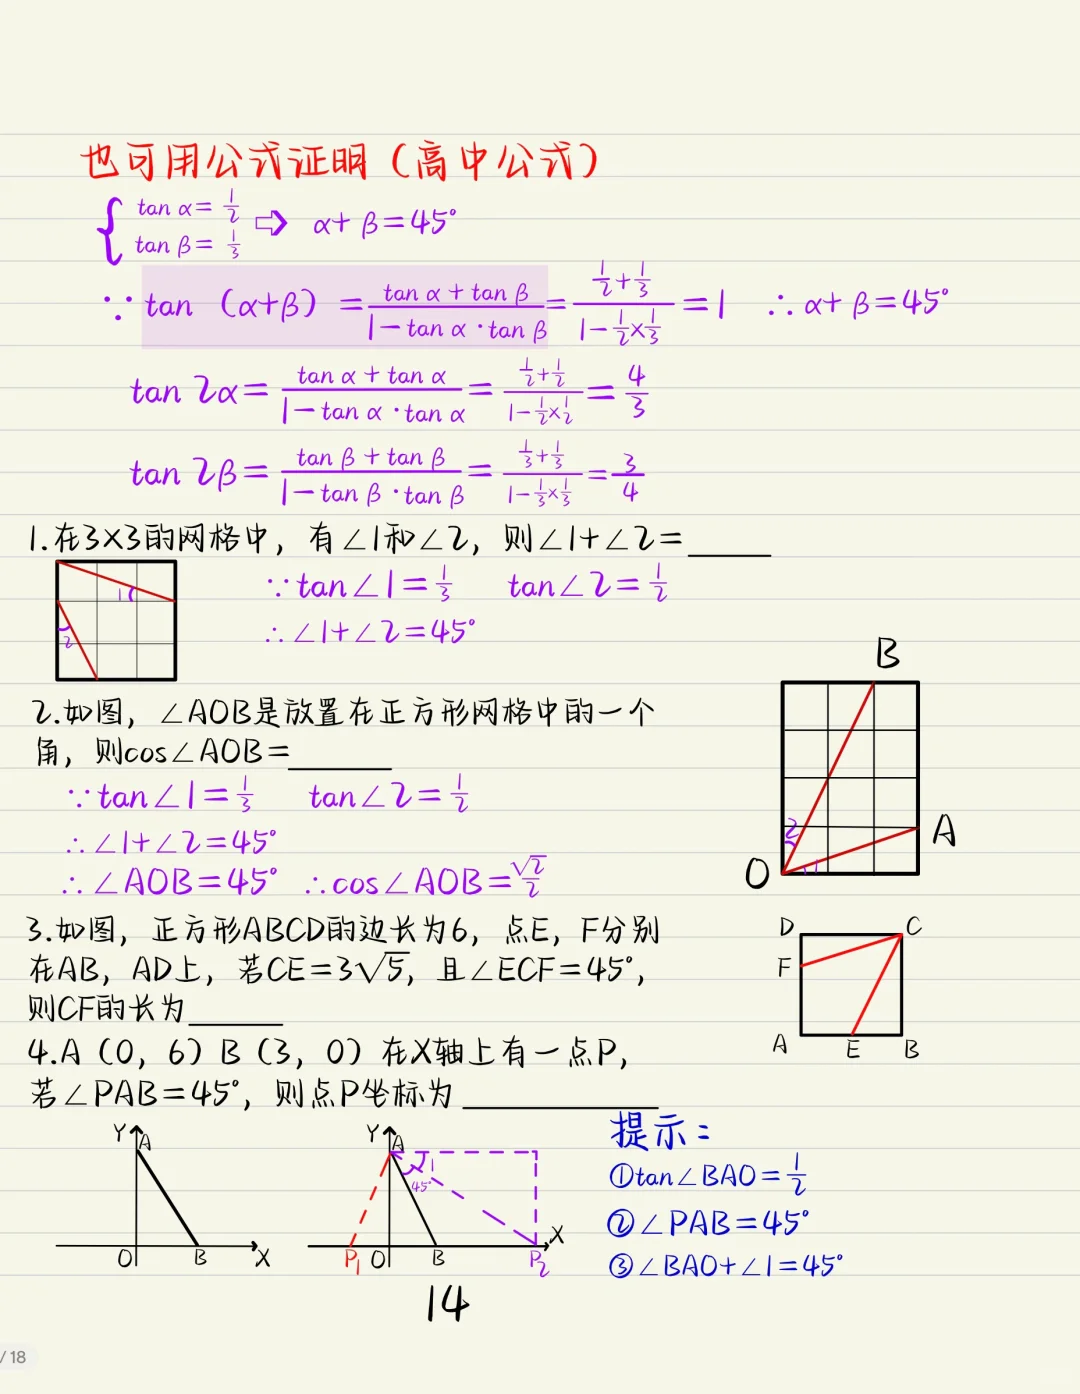 也可用公式证明（高中公式）
{ tan α = 1/2
tan β = 1/3 ⇨ α+β=45°
∵ tan（α+β）= (tan α + tan β)/(1 − tan α · tan β) = (1/2+1/3)/(1−1/2×1/3) = 1 ∴ α+β=45°
tan 2α = (tan α + tan α)/(1 − tan α · tan α) = (1/2+1/2)/(1−1/2×1/2) = 4/3
tan 2β = (tan β + tan β)/(1 − tan β · tan β) = (1/3+1/3)/(1−1/3×1/3) = 3/4
1.在3×3的网格中，有∠1和∠2，则∠1+∠2=____
1
2
∵tan∠1=1/3 tan∠2=1/2
∴∠1+∠2=45°
2.如图，∠AOB是放置在正方形网格中的一个
角，则cos∠AOB=____
∵tan∠1=1/3 tan∠2=1/2
∴∠1+∠2=45°
∴∠AOB=45° ∴cos∠AOB=√2/2
B
2
A
O
1
3.如图，正方形ABCD的边长为6，点E，F分别
在AB，AD上，若CE=3√5，且∠ECF=45°，
则CF的长为____
D C
F
A E B
4.A（0，6）B（3，0）在X轴上有一点P，
若∠PAB=45°，则点P坐标为____
Y A
O B X
Y A
1
45°
X
P₁ O B P₂
提示：
①tan∠BAO=1/2
②∠PAB=45°
③∠BAO+∠1=45°
14
/ 18